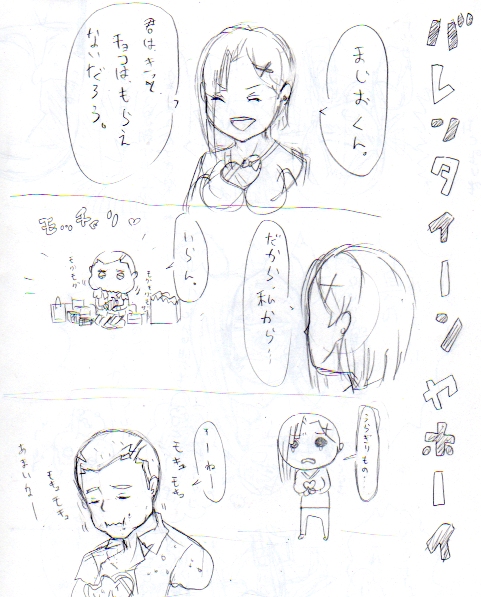 バレンタイーン ヤホーイ
まじおくん。
君はきっと
チョコはもらえ
ないだろう。
だから、私から…
いらん。
モッチャリ
もぐもぐ
もぐもぐ
うらぎりもの…
すーねー
モキュモキュ
モキュモキュ
あまいなー